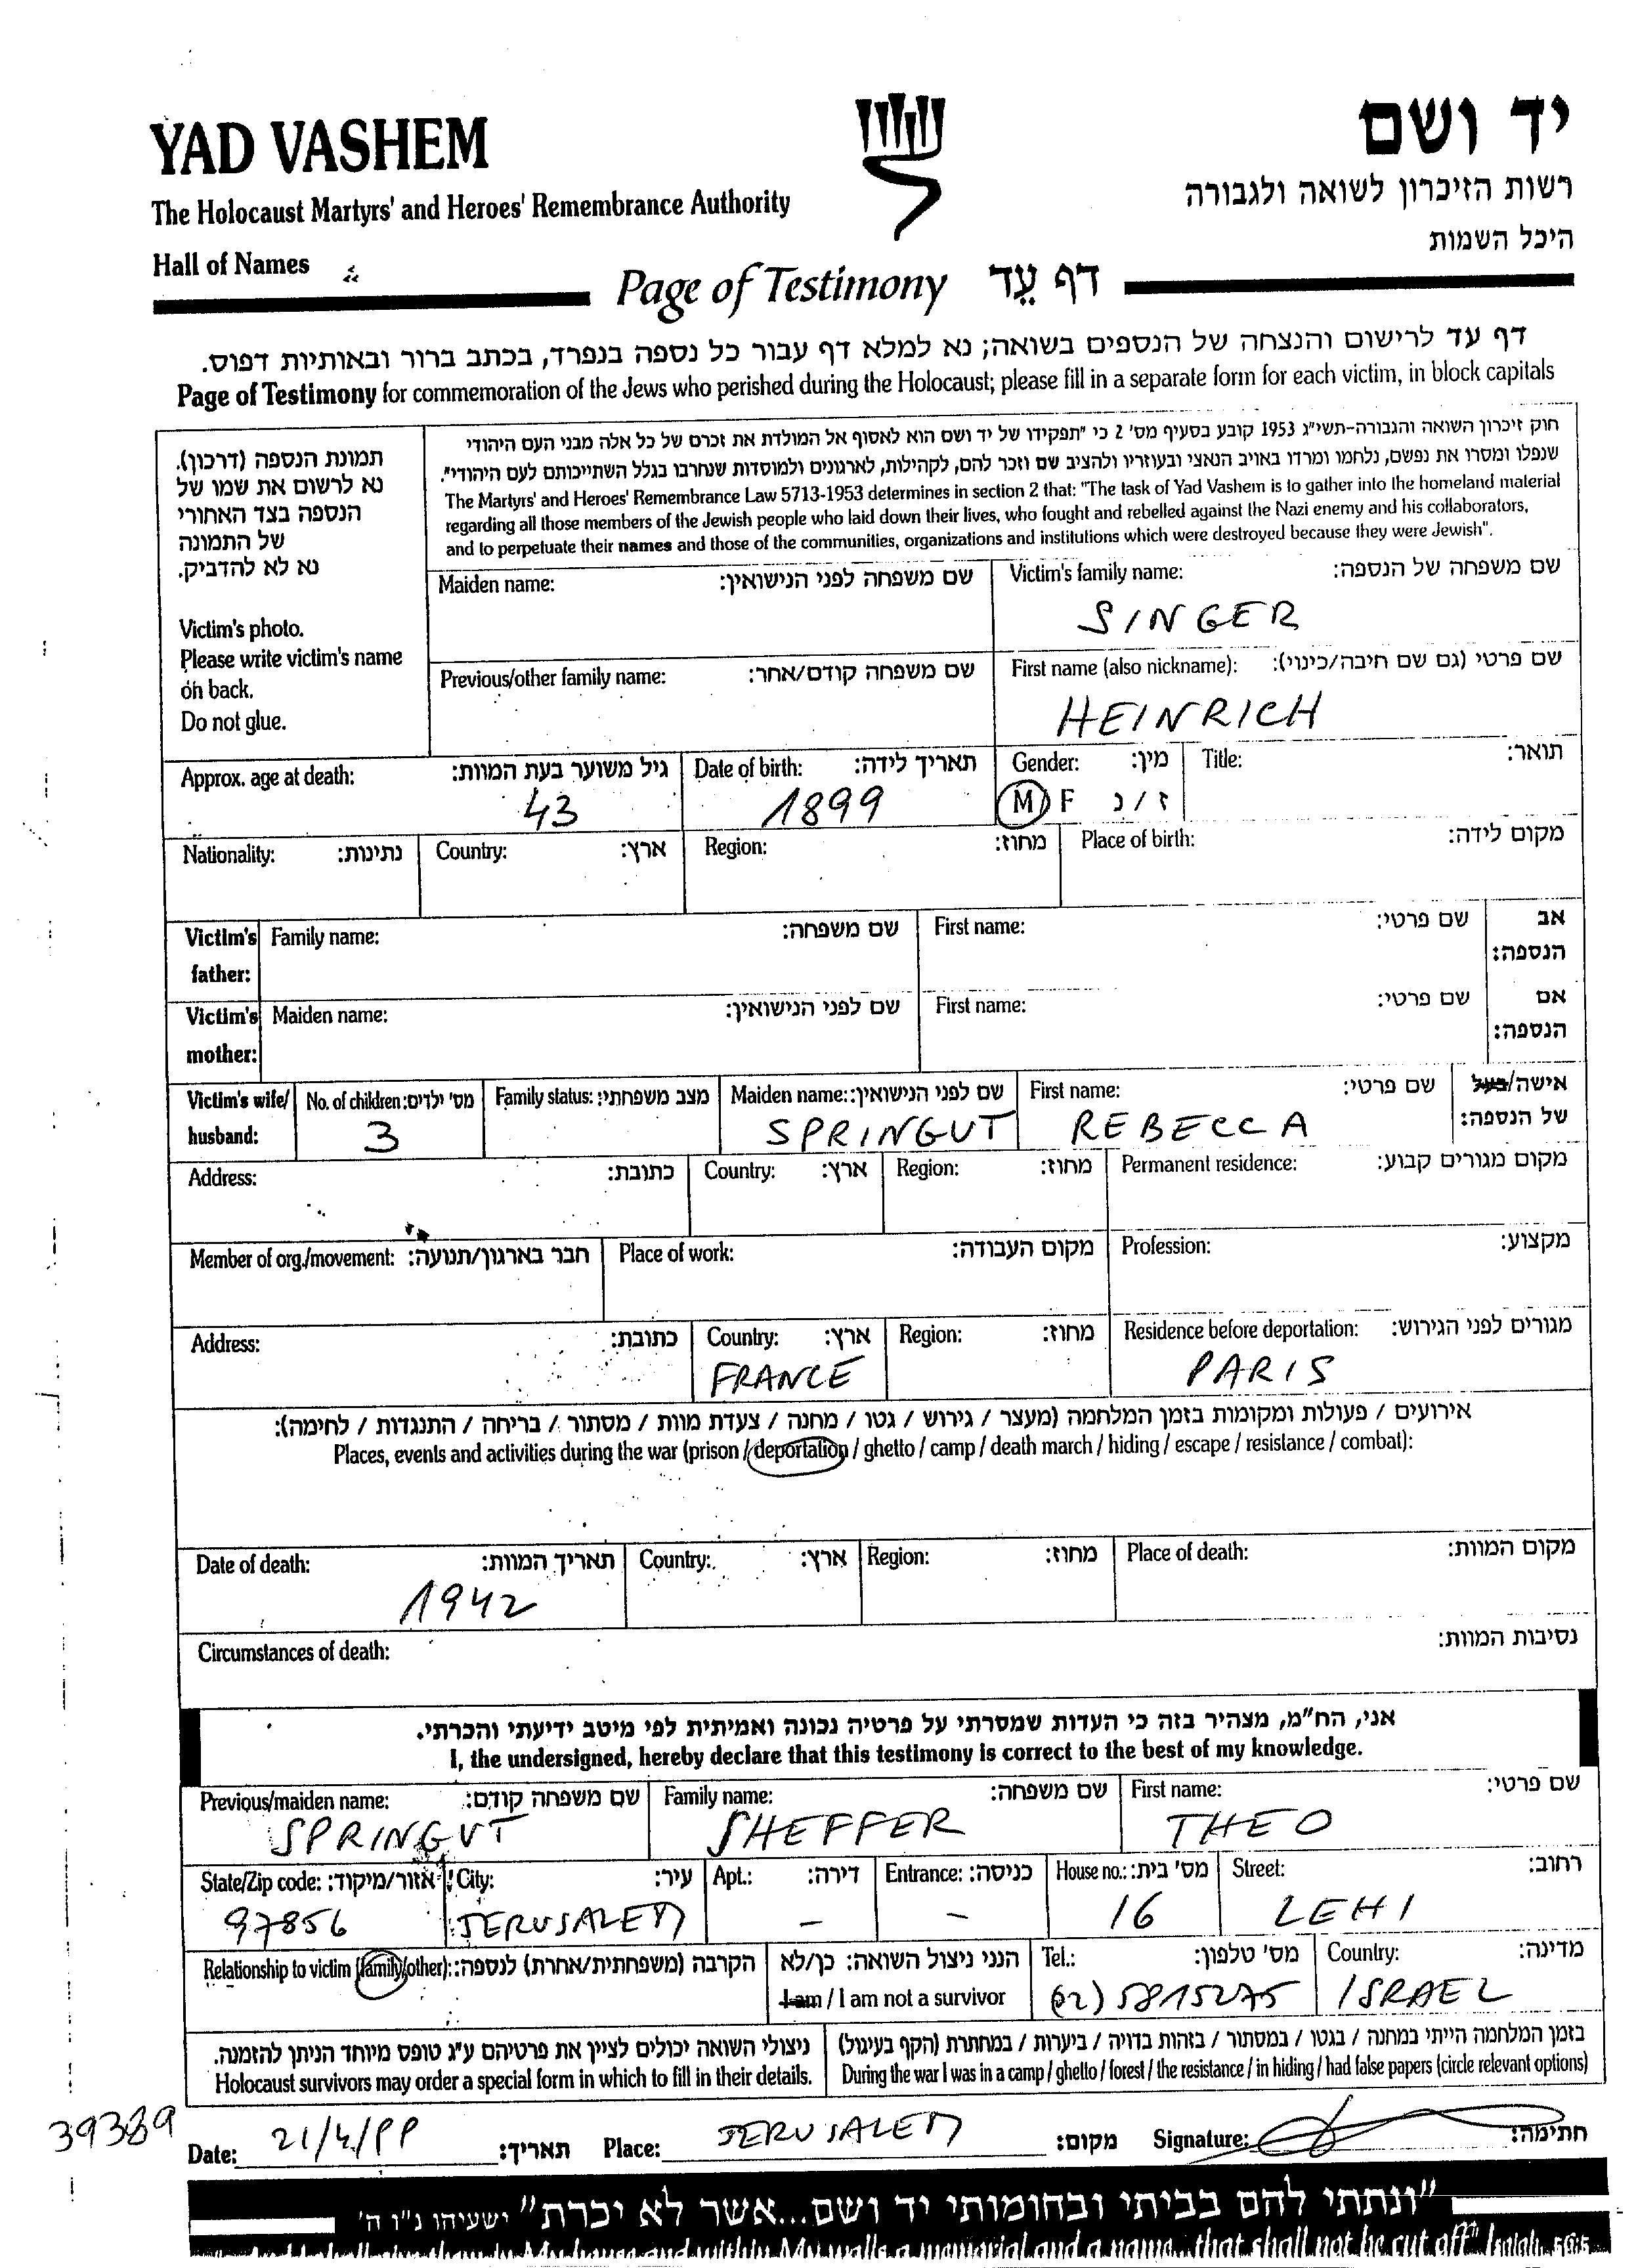 YAD VASHEM
יד ושם
The Holocaust Martyrs' and Heroes' Remembrance Authority
רשות הזיכרון לשואה ולגבורה
Hall of Names
היכל השמות
Page of Testimony דף עֵד
דף עד לרישום והנצחה של הנספים בשואה; נא למלא דף עבור כל נספה בנפרד, בכתב ברור ובאותיות דפוס.
Page of Testimony for commemoration of the Jews who perished during the Holocaust; please fill in a separate form for each victim, in block capitals
תמונת הנספה (דרכון).
נא לרשום את שמו של
הנספה בצד האחורי
של התמונה
נא לא להדביק.
Victim's photo.
Please write victim's name
on back.
Do not glue.
חוק זיכרון השואה והגבורה-תשי"ג 1953 קובע בסעיף מס' 2 כי "תפקידו של יד ושם הוא לאסוף אל המולדת את זכרם של כל אלה מבני העם היהודי
שנפלו ומסרו את נפשם, נלחמו ומרדו באויב הנאצי ובעוזריו ולהציב שם וזכר להם, לקהילות, לארגונים ולמוסדות שנחרבו בגלל השתייכותם לעם היהודי".
The Martyrs' and Heroes' Remembrance Law 5713-1953 determines in section 2 that: "The task of Yad Vashem is to gather into the homeland material
regarding all those members of the Jewish people who laid down their lives, who fought and rebelled against the Nazi enemy and his collaborators,
and to perpetuate their names and those of the communities, organizations and institutions which were destroyed because they were Jewish".
Maiden name: שם משפחה לפני הנישואין:
Victim's family name: שם משפחה של הנספה:
SINGER
Previous/other family name: שם משפחה קודם/אחר:
First name (also nickname): שם פרטי (גם שם חיבה/כינוי):
HEINRICH
Approx. age at death: גיל משוער בעת המוות: Date of birth: תאריך לידה: Gender: מין: Title: תואר:
43 1899 M F ז / נ
Nationality: נתינות: Country: ארץ: Region: מחוז: Place of birth: מקום לידה:
Victim's father: Family name: שם משפחה: First name: שם פרטי: אב הנספה:
Victim's mother: Maiden name: שם לפני הנישואין: First name: שם פרטי: אם הנספה:
Victim's wife/ husband: No. of children: מס' ילדים: Family status: מצב משפחתי: Maiden name: שם לפני הנישואין: First name: שם פרטי: אישה/בעל של הנספה:
3 SPRINGUT REBECCA
Address: כתובת: Country: ארץ: Region: מחוז: Permanent residence: מקום מגורים קבוע:
Member of org./movement: חבר בארגון/תנועה: Place of work: מקום העבודה: Profession: מקצוע:
Address: כתובת: Country: ארץ: Region: מחוז: Residence before deportation: מגורים לפני הגירוש:
FRANCE PARIS
אירועים / פעולות ומקומות בזמן המלחמה (מעצר / גירוש / גטו / מחנה / צעדת מוות / מסתור / בריחה / התנגדות / לחימה):
Places, events and activities during the war (prison / deportation / ghetto / camp / death march / hiding / escape / resistance / combat):
Date of death: תאריך המוות: Country: ארץ: Region: מחוז: Place of death: מקום המוות:
1942
Circumstances of death: נסיבות המוות:
אני, הח"מ, מצהיר בזה כי העדות שמסרתי על פרטיה נכונה ואמיתית לפי מיטב ידיעתי והכרתי.
I, the undersigned, hereby declare that this testimony is correct to the best of my knowledge.
Previous/maiden name: שם משפחה קודם: Family name: שם משפחה: First name: שם פרטי:
SPRINGUT SHEFFER THEO
State/Zip code: אזור/מיקוד: City: עיר: Apt.: דירה: Entrance: כניסה: House no.: מס' בית: Street: רחוב:
97856 JERUSALEM – – 16 LEHI
Relationship to victim (family/other): הקרבה (משפחתית/אחרת) לנספה: הנני ניצול השואה: כן/לא Tel.: מס' טלפון: Country: מדינה:
I am / I am not a survivor (02) 5815275 ISRAEL
ניצולי השואה יכולים לציין את פרטיהם ע"ג טופס מיוחד הניתן להזמנה.
Holocaust survivors may order a special form in which to fill in their details.
בזמן המלחמה הייתי במחנה / בגטו / במסתור / בזהות בדויה / ביערות / במחתרת (הקף בעיגול)
During the war I was in a camp / ghetto / forest / the resistance / in hiding / had false papers (circle relevant options)
39389
Date: 21/4/99 תאריך: Place: JERUSALEM מקום: Signature: חתימה:
"ונתתי להם בביתי ובחומותי יד ושם...אשר לא יכרת" ישעיהו נ"ו ה'